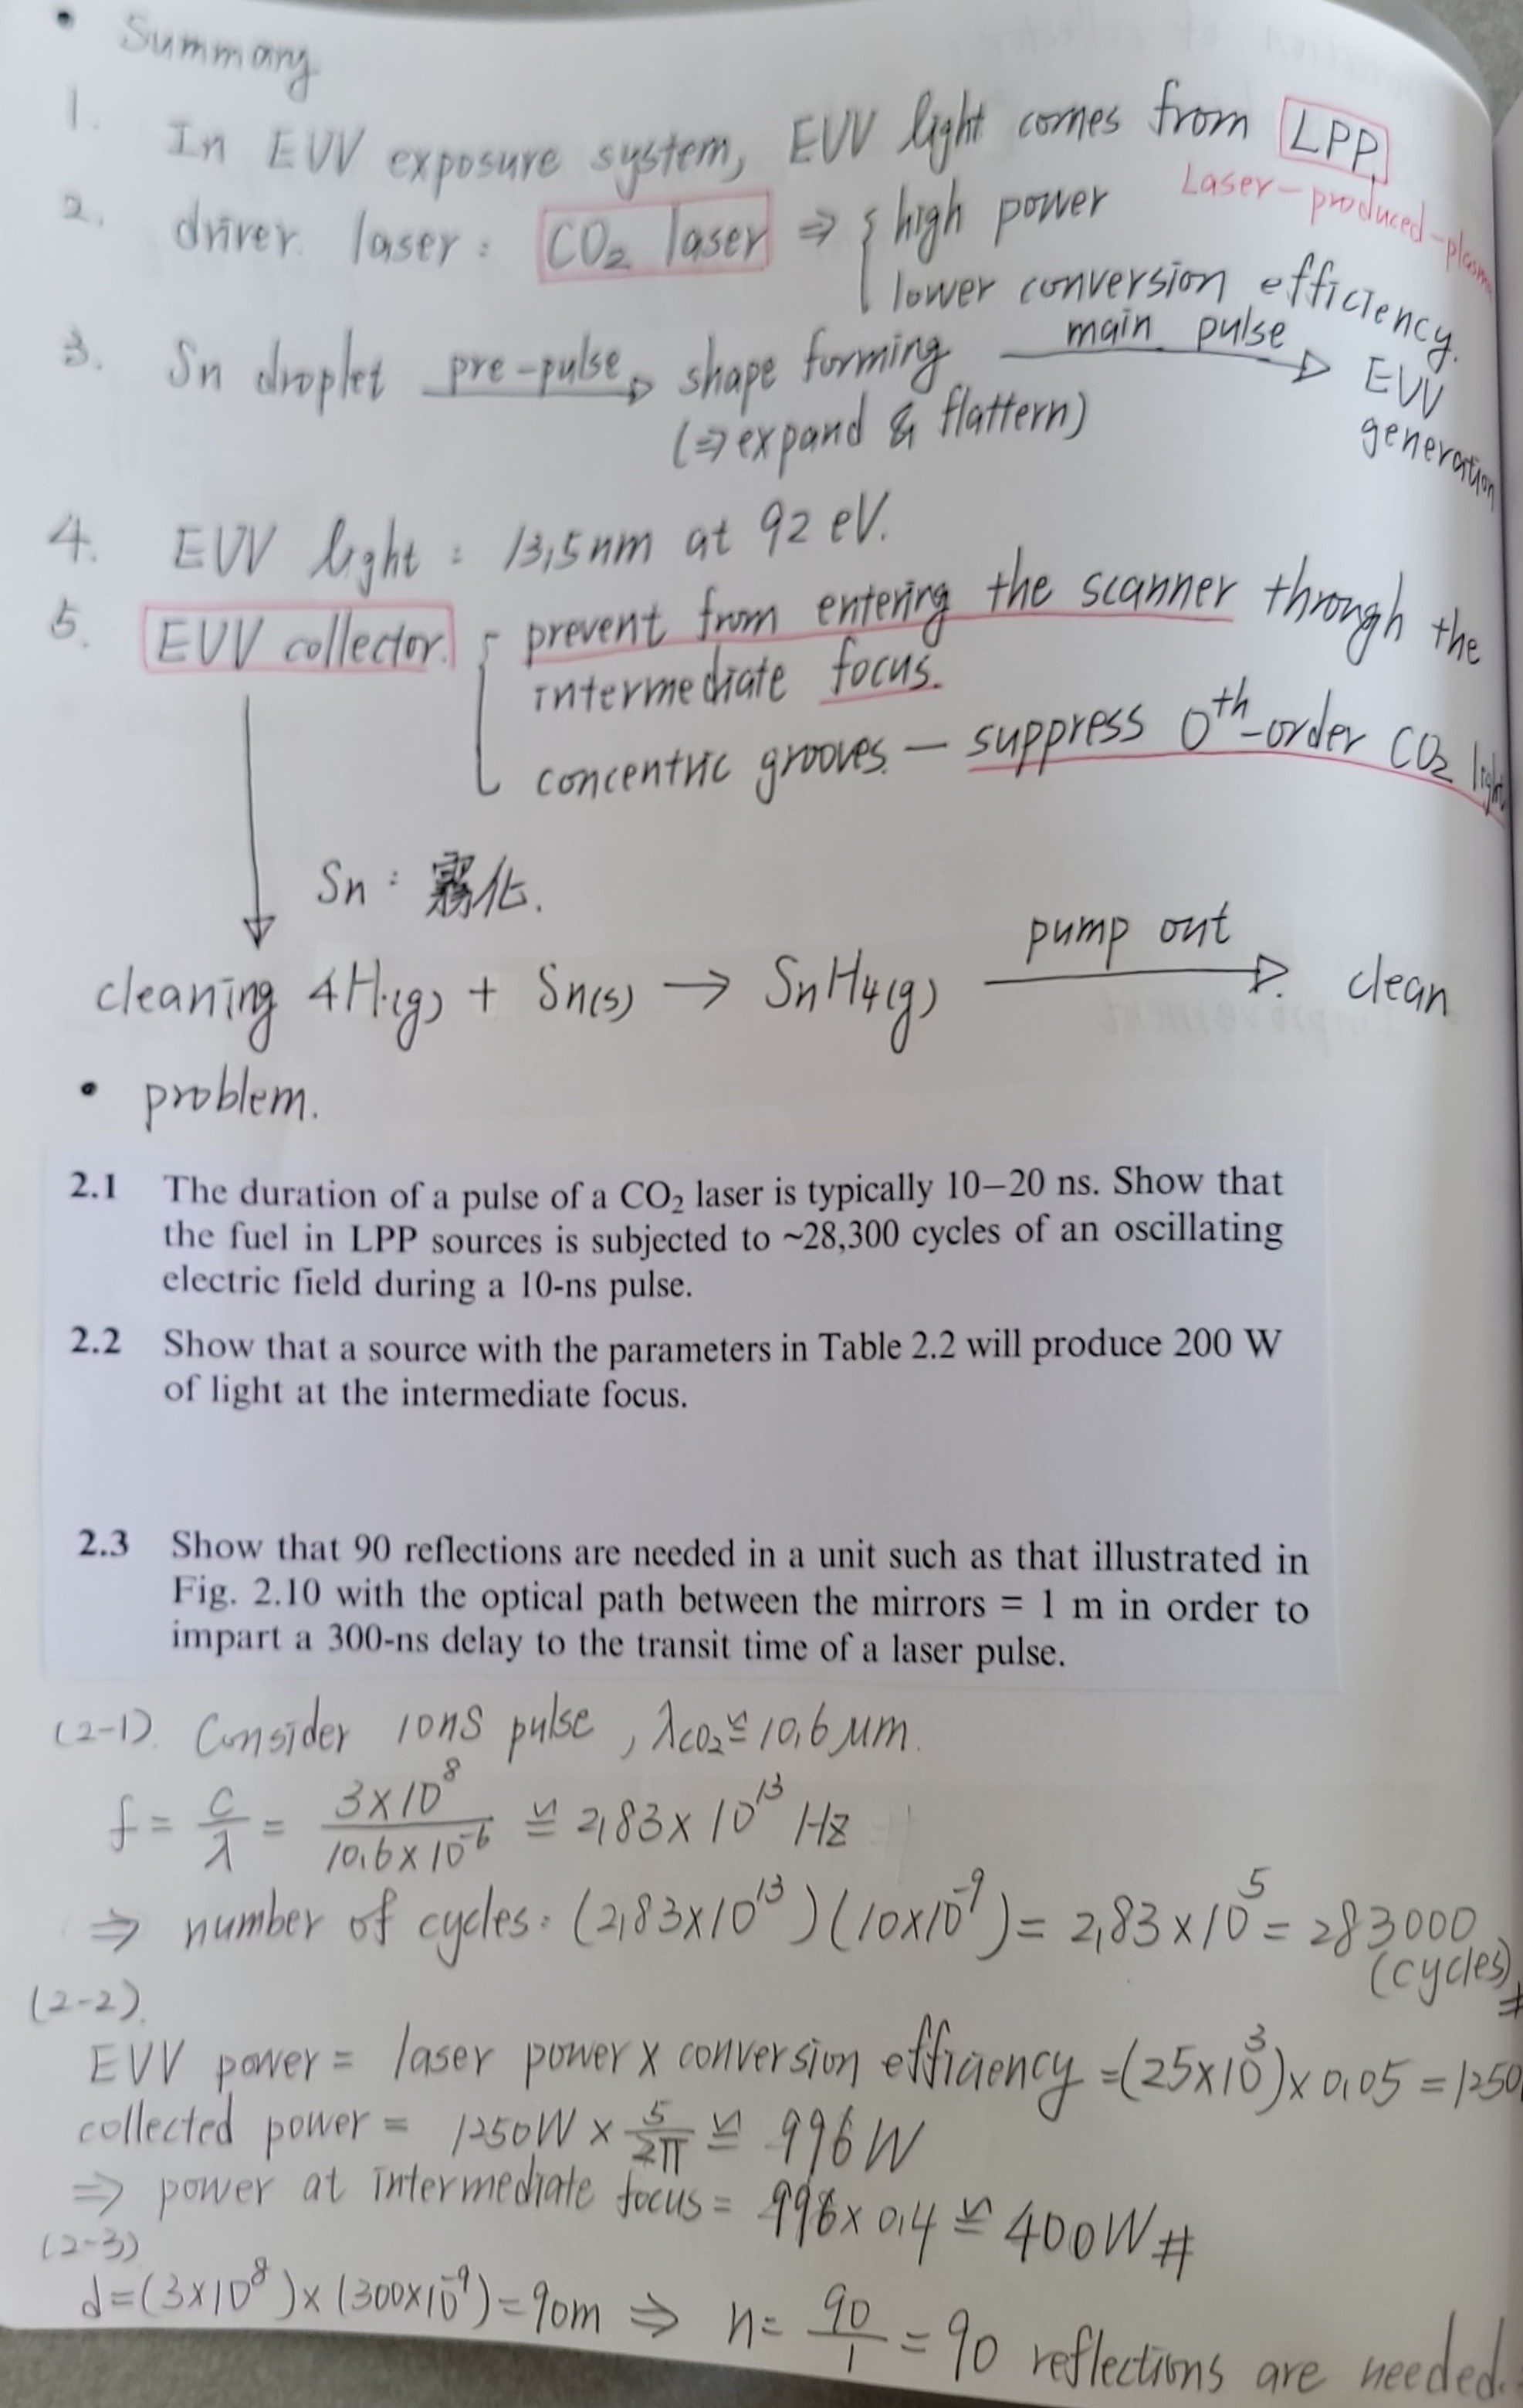 • Summary
1. In EUV exposure system, EUV light comes from LPP
Laser-produced-plasma
2. driver laser: CO₂ laser ⇒ { high power
lower conversion efficiency.
3. Sn droplet pre-pulse→ shape forming main pulse→ EUV generation
(⇒ expand & flattern)
4. EUV light: 13,5nm at 92 eV.
5. EUV collector. { prevent from entering the scanner through the
intermediate focus.
concentric grooves. — suppress 0th-order CO₂ light
Sn: 霧化.
cleaning 4H·(g) + Sn(s) → SnH₄(g) pump out→ clean
• problem.
2.1 The duration of a pulse of a CO₂ laser is typically 10–20 ns. Show that
the fuel in LPP sources is subjected to ~28,300 cycles of an oscillating
electric field during a 10-ns pulse.
2.2 Show that a source with the parameters in Table 2.2 will produce 200 W
of light at the intermediate focus.
2.3 Show that 90 reflections are needed in a unit such as that illustrated in
Fig. 2.10 with the optical path between the mirrors = 1 m in order to
impart a 300-ns delay to the transit time of a laser pulse.
(2-1). Consider 10ns pulse, λCO₂ ≌ 10,6 μm.
f = c/λ = 3×10⁸/10,6×10⁻⁶ ≌ 2,83×10¹³ Hz
⇒ number of cycles: (2,83×10¹³)(10×10⁻⁹) = 2,83×10⁵ = 283000
(cycles)#
(2-2).
EUV power = laser power × conversion efficiency = (25×10³)×0,05 = 1250
collected power = 1250W × 5/2π ≌ 996W
⇒ power at intermediate focus = 996×0,4 ≌ 400W #
(2-3)
d = (3×10⁸)×(300×10⁻⁹) = 90m ⇒ n = 90/1 = 90 reflections are needed.